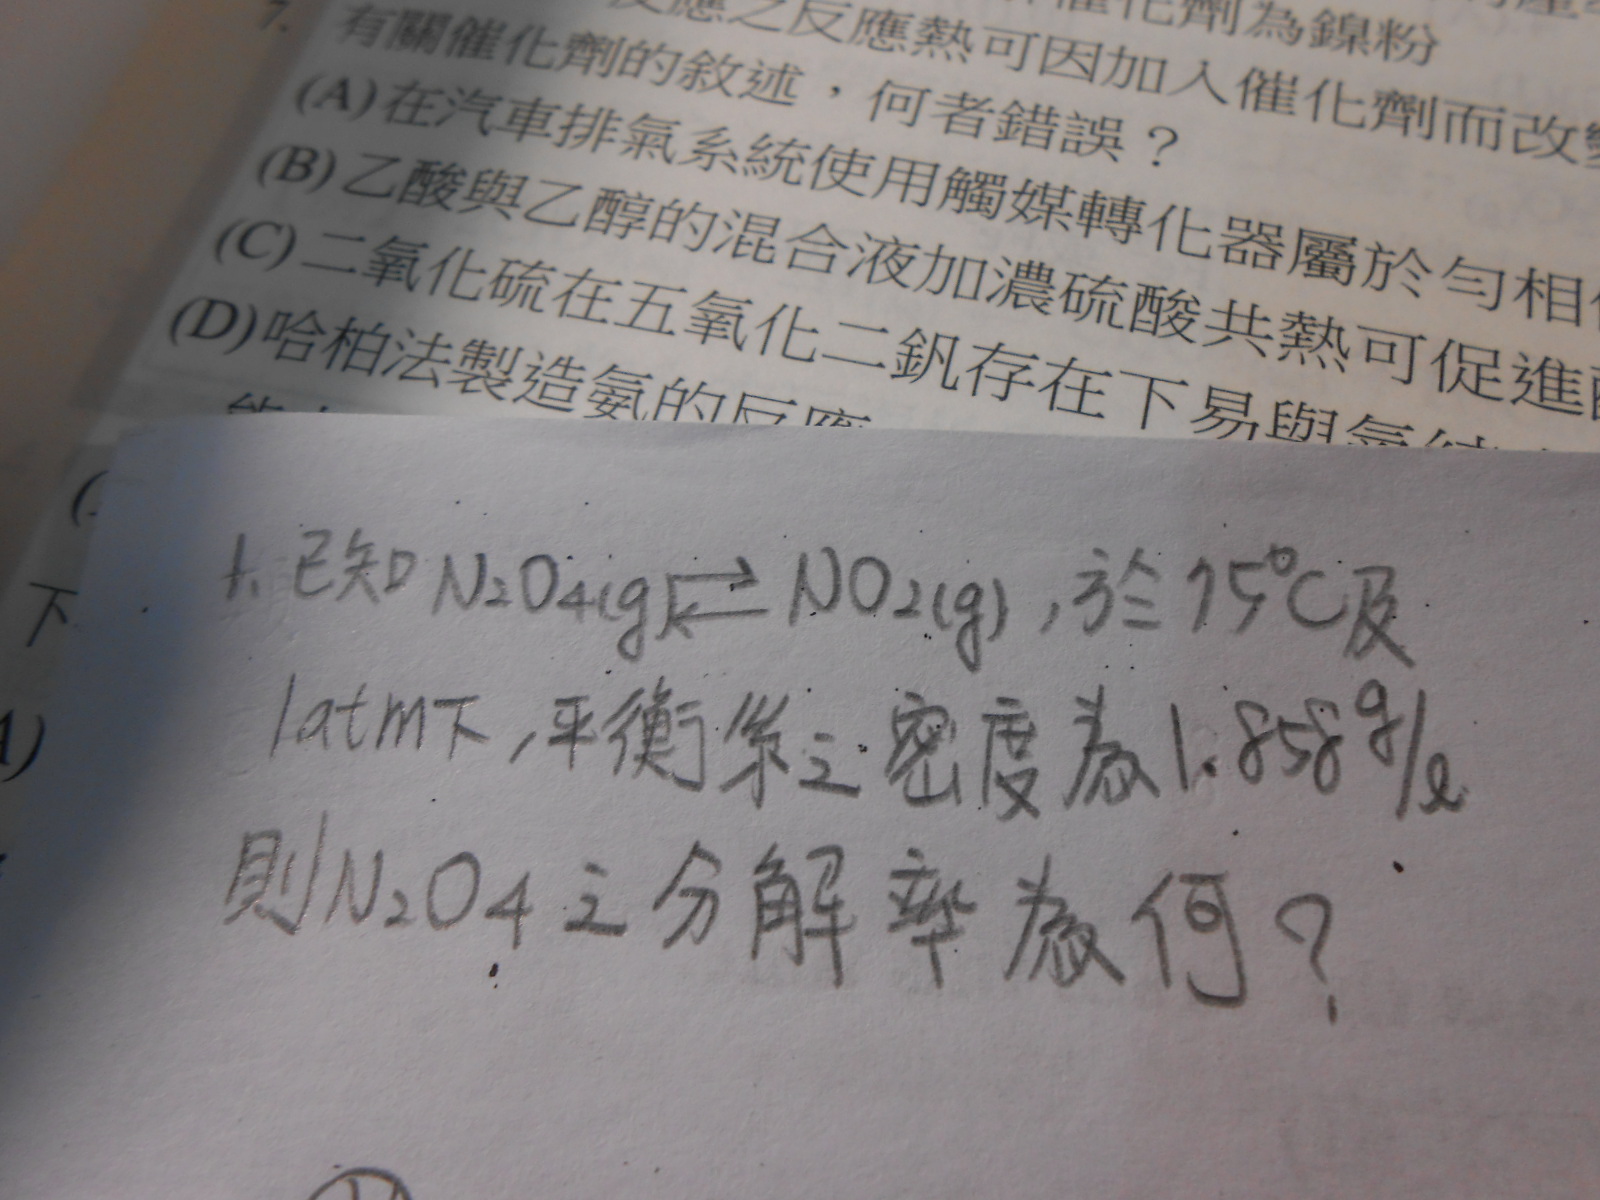 反應之反應熱可因加入催化劑而改變
催化劑為鎳粉
7.
有關催化劑的敘述，何者錯誤？
(A)在汽車排氣系統使用觸媒轉化器屬於勻相
(B)乙酸與乙醇的混合液加濃硫酸共熱可促進
(C)二氧化硫在五氧化二釩存在下易與氧
(D)哈柏法製造氨的反應
下
A)
1. 已知 N2O4(g) ⇌ NO2(g) , 於 75°C及
1atm下,平衡系之密度為1.858g/ℓ
則N2O4之分解率為何?